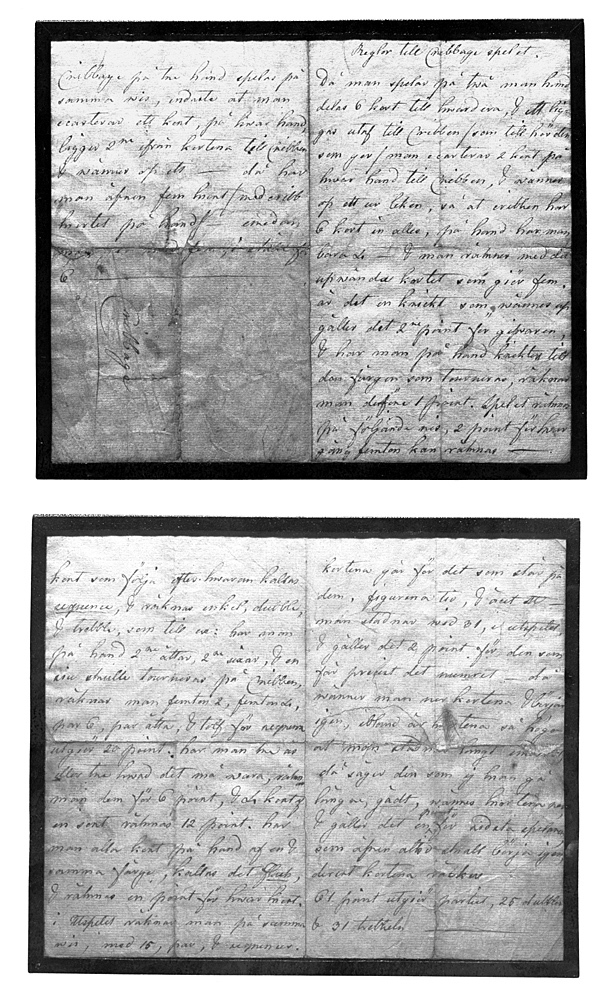 Reglor till Cribbage spelet.
Då man spelar på twå man hand
delas 6 kort till hwardera, & ett
gås utaf till Cribben /som till hör den
som ger/ man ecarterar 2 kort på
hwar hand till Cribben, & wänner
op ett ur leken, så at cribben har
6 kort in alles, på hand har man
bara 4 — & man räknar med det
upwända kortet som giör fem.
är det en knickt som wännes op
gäller det 2ne point för gifwaren,
& har man på hand knickten till
den färgen som tourneras, räknar
man derföre 1 point. Spelet räknas
på följande wis, 2 point för hwar
gång femton kan räknas —
kort som följa efter hwaran kallas
sequence, & räknas enkel, dubbel,
& trebble, som till ex: har man
på hand 2ne åttar, 2ne siuar, & en
siu skulle tourneras på Cribben,
räknar man femton 2, femton 4,
par 6, par åtta, & tolf för sequence
utgiör 20 point. har man tre äs
eller tre hwad det må wara, räknar
man dem för 6 point, & 4 kort af
en sort räknas 12 point. har
man alla kort på hand af en &
samma färge, kallas det Flush,
& räknas en point för hwar kort.
i Utspelet räknar man på samma
wis, med 15, par, & sequencer.
kortena går för det som står på
dem, figurena tio, & äset ett —
man stadnar wid 31, i utspelet,
& gäller det 2 point för den som
får precist det numret — då
wänner man ner kortena & börjar
igen, ibland är kortena så höga
at man stadnar långt innan
då säger den som ej kan gå
längre, gådt, wännes kortena ner
& gäller det en för sedsta spelaren
som äfven altid skall börja igen
derest kortena räcker
61 point utgiör partiet, 25 dubbelt
& 31 trebbelt
Cribbage på tre hand spelas på
samma wis, endaste at man
ecarterar ett kort, på hwar hand,
lägger 2ne ifrån kortena till Cribben
& wänner op ett — då har
man äfven fem kort /med cribb
kortet på hand/ — emedan
6
Cribbage